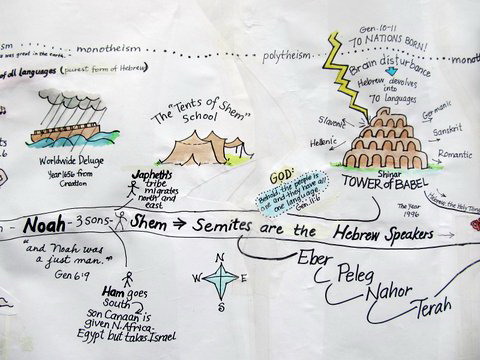 ism ....... monotheism .......
polytheism
mono
was great in the earth.
of all languages (purest form of Hebrew)
Worldwide Deluge
Year 1656 from
Creation
The "Tents of Shem"
School
Gen. 10-11
70 NATIONS BORN!
Brain disturbance
Hebrew devolves
into
70 languages
Slavonic
Hellenic
Germanic
Sanskrit
Romantic
Shinar
TOWER of BABEL
The Year
1996
Hebrew the Holy Tongue
Japheth's
tribe
migrates
north and
east
GOD:
Behold, the people is
one and they have all
one language.
Gen. 11:6
Noah - 3 sons - Shem ⇒ Semites are the Hebrew Speakers →
"and Noah was
a just man."
Gen 6:9
Ham goes
south
son Canaan is
given N. Africa-
Egypt but takes Israel
N
W E
S
Eber
Peleg
Nahor
Terah